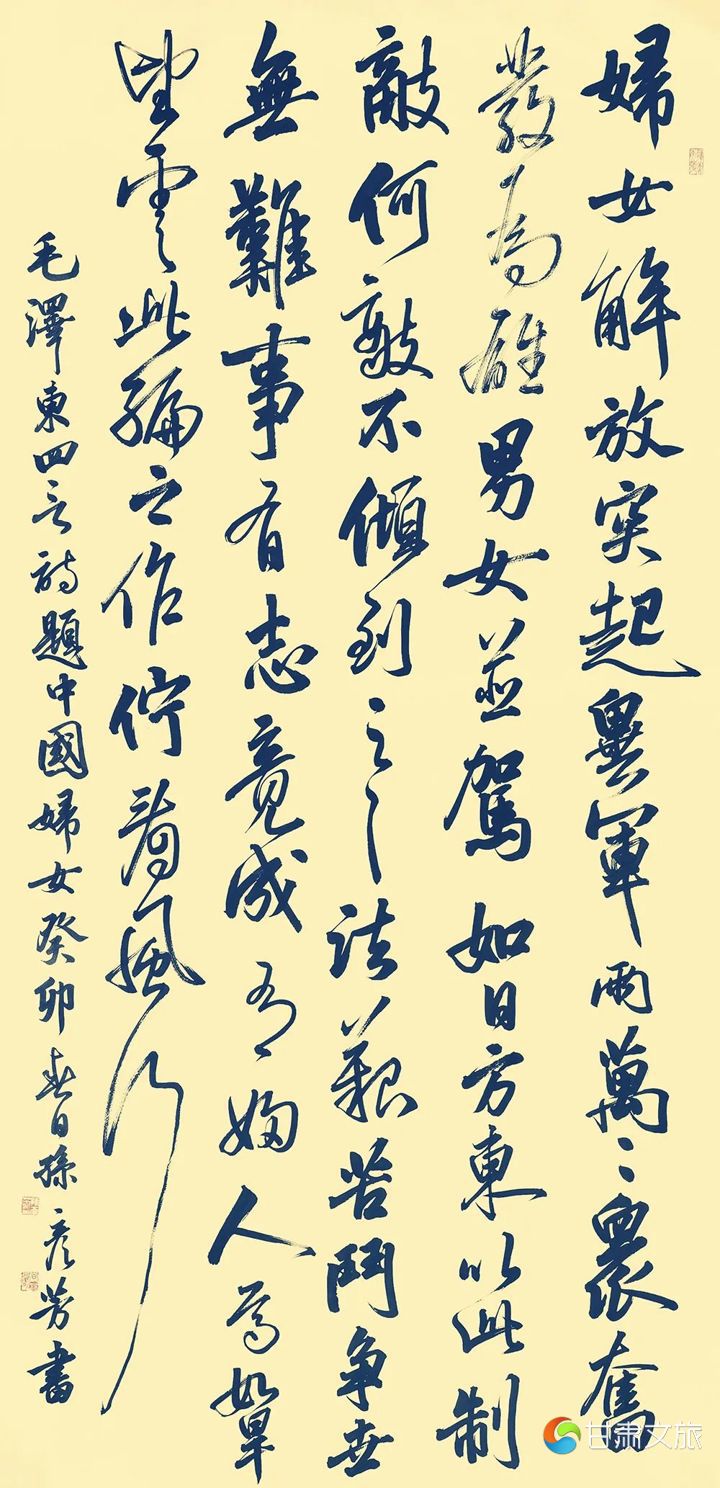 婦女解放突起異軍兩萬〻衆奮
發為雄男女並駕如日方東以此制
敵何敵不傾到之〻法艱苦鬥爭世
無難事有志竟成有婦人焉如旱
望雲此編之作佇看風行
毛澤東四言詩題中國婦女癸卯春日孫彥芳書
甘肃文旅